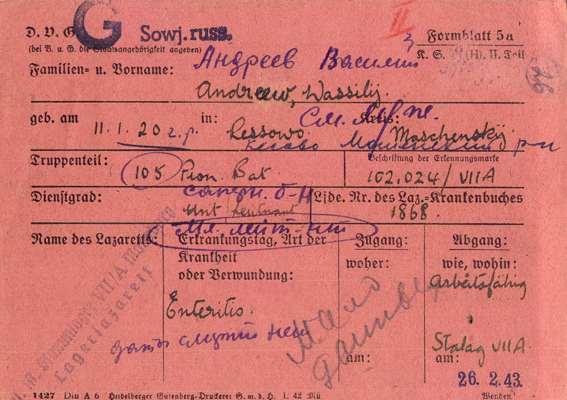 D. V. G. G Sowj.russ. II 3 Formblatt 5a
(bei V. u. G. die Staatsangehörigkeit angeben) K. S. II. Teil
Familien- u. Vorname: Андреев Василий
Andreew, Wassilij
geb. am 11.1.20 г.р. in: Lessowo Kreis: Moschenskij
р-н
Truppenteil: 105 Pion. Bat Beschriftung der Erkennungsmarke
102.024/VIIA
саперн. б-н
Dienstgrad: Unt Leutnant Lfde. Nr. des Laz.-Krankenbuches
1868.
Мл. лейт-нт
Name des Lazaretts: Erkrankungstag, Art der Krankheit oder Verwundung: Zugang: woher: Abgang: wie, wohin:
VII/A
Lagerlazarett
Enteritis. Arbeitsfähig
даты смерти нет
Мало
данных
Stalag VIIA
am: am:
26. 2. 43.
1427 Din A 6 Heidelberger Gutenberg-Druckerei G. m. b. H. I. 42 Mü Wenden!